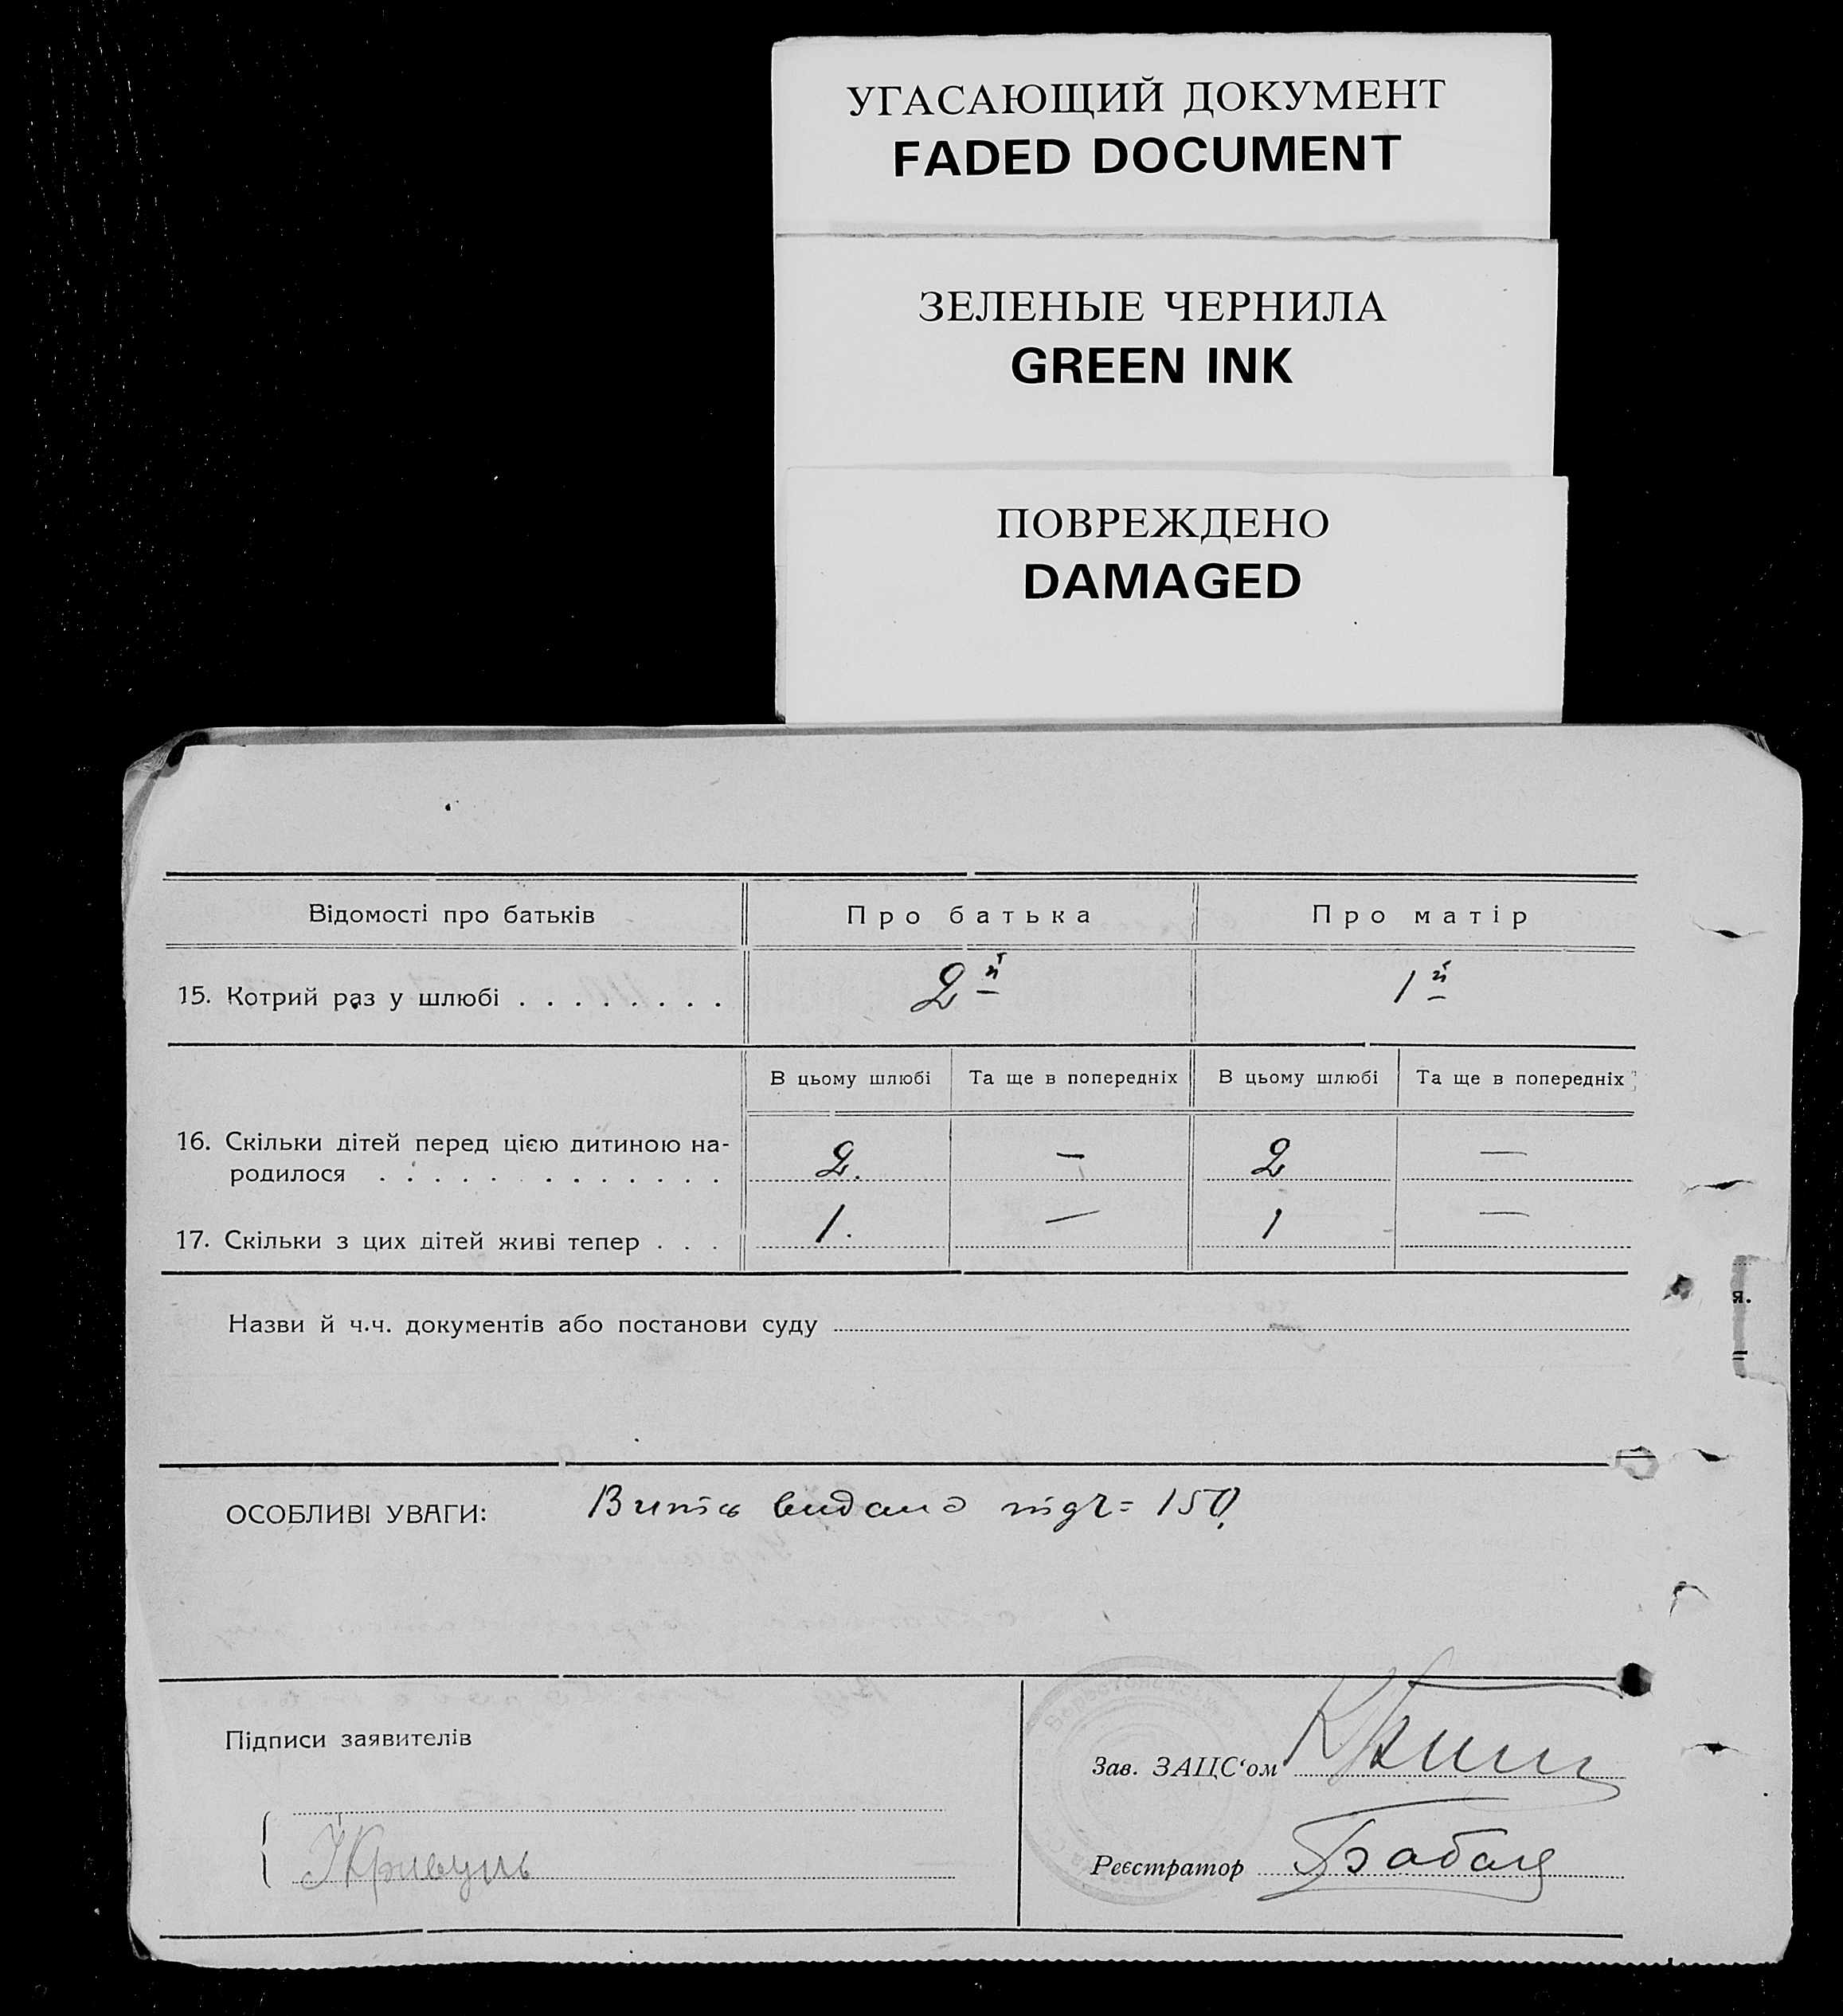 УГАСАЮЩИЙ ДОКУМЕНТ
FADED DOCUMENT
ЗЕЛЕНЫЕ ЧЕРНИЛА
GREEN INK
ПОВРЕЖДЕНО
DAMAGED
Відомості про батьків Про батька Про матір
15. Котрий раз у шлюбі . . . . . . . . 2й 1й
В цьому шлюбі Та ще в попередніх В цьому шлюбі Та ще в попередніх
16. Скільки дітей перед цією дитиною на-
родилося . . . . . . . . . . . . . 2. — 2 —
17. Скільки з цих дітей живі тепер . . . 1. — 1 —
я.
Назви й ч.ч. документів або постанови суду —
ОСОБЛИВІ УВАГИ: Витяг видано під ч= 150
Підписи заявителів
Зав. ЗАЦС‘ом
Кривуць
Реєстратор